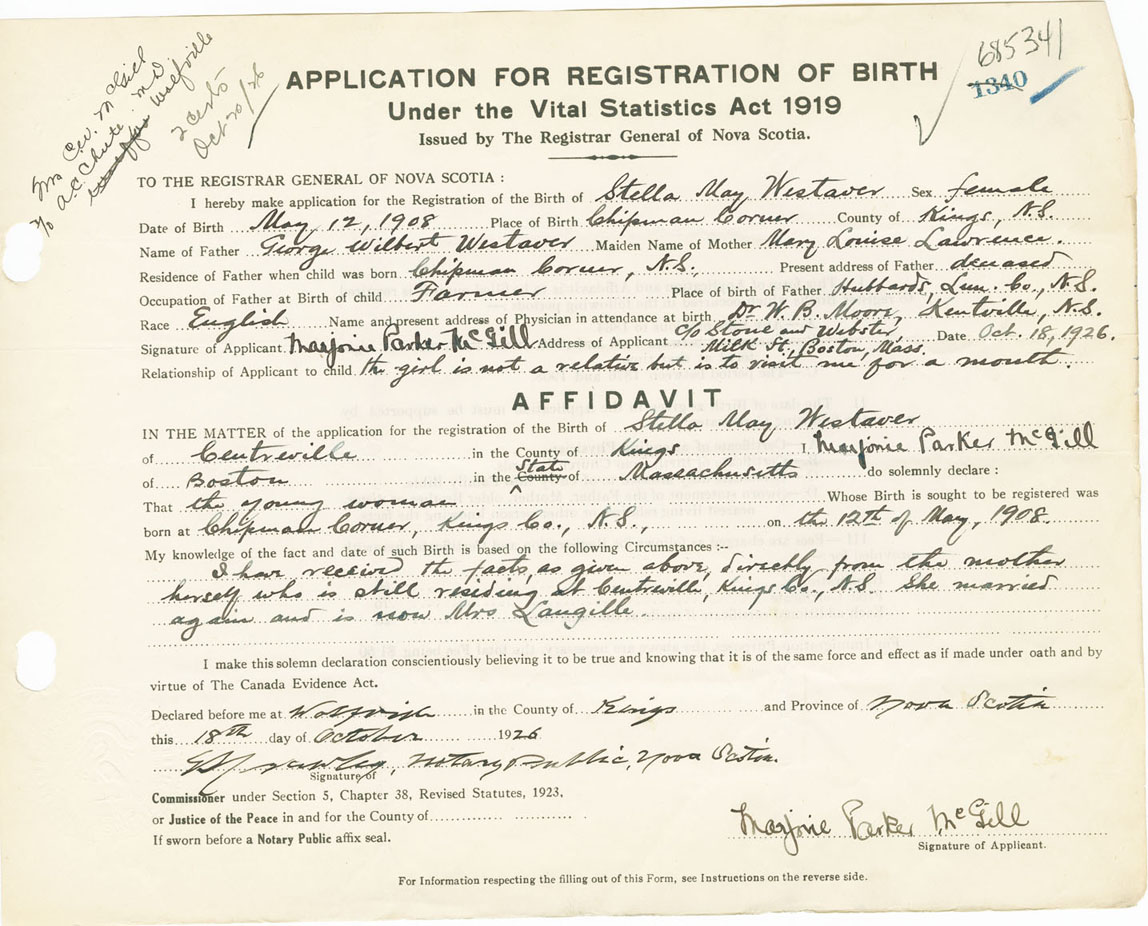 685341
1340
Mrs C.W. McGill
c/o A.C. Chute M.D.
Wolfville
2 certs
Oct 20/26
APPLICATION FOR REGISTRATION OF BIRTH
Under the Vital Statistics Act 1919
Issued by The Registrar General of Nova Scotia.
TO THE REGISTRAR GENERAL OF NOVA SCOTIA :
I hereby make application for the Registration of the Birth of Stella May Westaver Sex female
Date of Birth May 12, 1908 Place of Birth Chipman Corner County of Kings, N.S.
Name of Father George Wilbert Westaver Maiden Name of Mother Mary Louise Lawrence.
Residence of Father when child was born Chipman Corner, N.S. Present address of Father deceased
Occupation of Father at Birth of child Farmer Place of birth of Father Hubbards, Lun. Co., N.S.
Race English Name and present address of Physician in attendance at birth Dr W. B. Moore, Kentville, N.S.
Signature of Applicant Marjorie Parker McGill Address of Applicant c/o Stone and Webster, Milk St., Boston, Mass. Date Oct. 18, 1926.
Relationship of Applicant to child the girl is not a relative but is to visit me for a month.
AFFIDAVIT
IN THE MATTER of the application for the registration of the Birth of Stella May Westaver
of Centreville in the County of Kings I, Marjorie Parker McGill
of Boston in the County State of Massachusetts do solemnly declare :
That the young woman Whose Birth is sought to be registered was
born at Chipman Corner, Kings Co., N.S., on the 12th of May, 1908
My knowledge of the fact and date of such Birth is based on the following Circumstances :--
I have received the facts, as given above, directly from the mother
herself who is still residing at Centreville, Kings Co., N.S. She married
again and is now Mrs Langille.
I make this solemn declaration conscientiously believing it to be true and knowing that it is of the same force and effect as if made under oath and by
virtue of The Canada Evidence Act.
Declared before me at Wolfville in the County of Kings and Province of Nova Scotia
this 18th day of October 1926
Notary Public, Nova Scotia.
Signature of
Commissioner under Section 5, Chapter 38, Revised Statutes, 1923,
or Justice of the Peace in and for the County of
If sworn before a Notary Public affix seal.
Marjorie Parker McGill
Signature of Applicant.
For Information respecting the filling out of this Form, see Instructions on the reverse side.